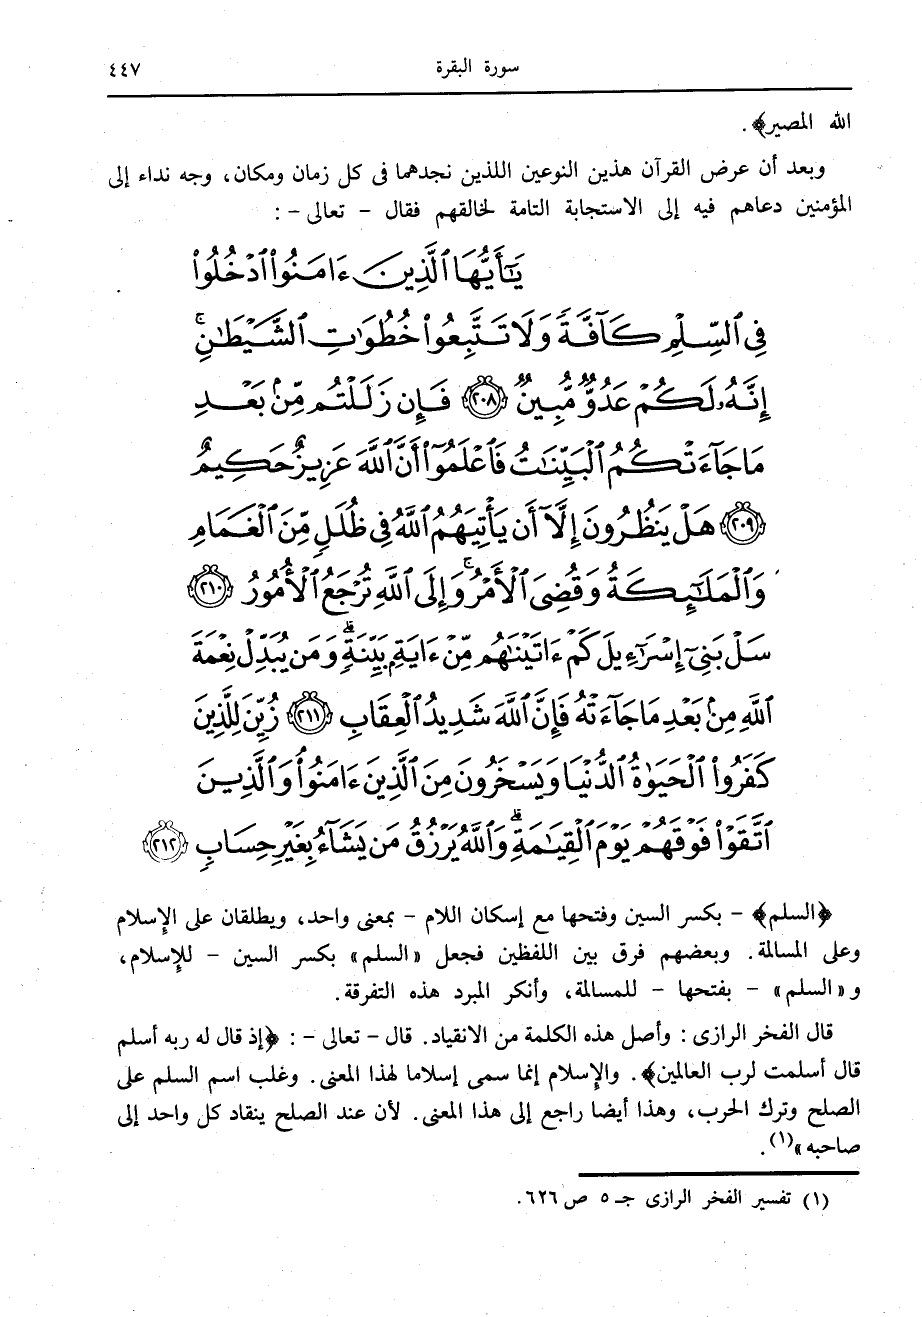 سورة البقرة ٤٤٧
الله المصير﴾ .
وبعد أن عرض القرآن هذين النوعين اللذين نجدهما فى كل زمان ومكان، وجه نداء إلى
المؤمنين دعاهم فيه إلى الاستجابة التامة لخالقهم فقال - تعالى - :
يَٰٓأَيُّهَا ٱلَّذِينَ ءَامَنُوا۟ ٱدْخُلُوا۟
فِى ٱلسِّلْمِ كَآفَّةً وَلَا تَتَّبِعُوا۟ خُطُوَٰتِ ٱلشَّيْطَٰنِ ۚ
إِنَّهُۥ لَكُمْ عَدُوٌّ مُّبِينٌ ﴿٢٠٨﴾ فَإِن زَلَلْتُم مِّنۢ بَعْدِ
مَا جَآءَتْكُمُ ٱلْبَيِّنَٰتُ فَٱعْلَمُوٓا۟ أَنَّ ٱللَّهَ عَزِيزٌ حَكِيمٌ
﴿٢٠٩﴾ هَلْ يَنظُرُونَ إِلَّآ أَن يَأْتِيَهُمُ ٱللَّهُ فِى ظُلَلٍ مِّنَ ٱلْغَمَامِ
وَٱلْمَلَٰٓئِكَةُ وَقُضِىَ ٱلْأَمْرُ ۚ وَإِلَى ٱللَّهِ تُرْجَعُ ٱلْأُمُورُ ﴿٢١٠﴾
سَلْ بَنِىٓ إِسْرَٰٓءِيلَ كَمْ ءَاتَيْنَٰهُم مِّنْ ءَايَةٍۭ بَيِّنَةٍ ۗ وَمَن يُبَدِّلْ نِعْمَةَ
ٱللَّهِ مِنۢ بَعْدِ مَا جَآءَتْهُ فَإِنَّ ٱللَّهَ شَدِيدُ ٱلْعِقَابِ ﴿٢١١﴾ زُيِّنَ لِلَّذِينَ
كَفَرُوا۟ ٱلْحَيَوٰةُ ٱلدُّنْيَا وَيَسْخَرُونَ مِنَ ٱلَّذِينَ ءَامَنُوا۟ ۘ وَٱلَّذِينَ
ٱتَّقَوْا۟ فَوْقَهُمْ يَوْمَ ٱلْقِيَٰمَةِ ۗ وَٱللَّهُ يَرْزُقُ مَن يَشَآءُ بِغَيْرِ حِسَابٍ ﴿٢١٢﴾
﴿السلم﴾ - بكسر السين وفتحها مع إسكان اللام - بمعنى واحد، ويطلقان على الإسلام
وعلى المسالمة. وبعضهم فرق بين اللفظين فجعل «السلم» بكسر السين - للإسلام،
و«السلم» - بفتحها - للمسالمة، وأنكر المبرد هذه التفرقة.
قال الفخر الرازى : وأصل هذه الكلمة من الانقياد. قال - تعالى - : ﴿إذ قال له ربه أسلم
قال أسلمت لرب العالمين﴾. والإسلام إنما سمى إسلاما لهذا المعنى. وغلب اسم السلم على
الصلح وترك الحرب، وهذا أيضا راجع إلى هذا المعنى. لأن عند الصلح ينقاد كل واحد إلى
صاحبه»(١).
(١) تفسير الفخر الرازى جـ ٥ ص ٦٢٦.